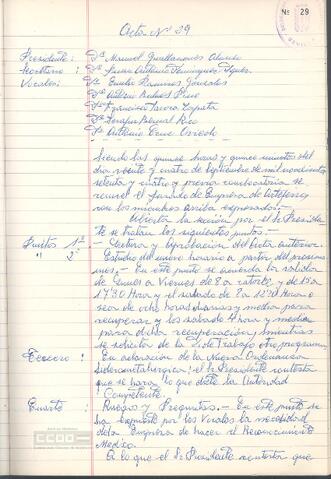 Nº 29
Acta Nº 29
Presidente: Dº Manuel Alonso
Secretario: Dº Antonio Dominguez
Vocales: Dº Emilio Ramirez Gonzalez
Dº Antonio
Dº Francisco Zapata
Dº Serafin Bernal Rico
Dº Antonio Cruz Oviedo
Siendo las quince horas y quince minutos del
dia veinte y cuatro de Septiembre de mil novecientos
setenta y cuatro y previa convocatoria se
reunel el Jurado de Empresa de
con los miembros arriba expresados.-
Abierta la sección por el Sr Preside
te se tratan los siguientes puntos.-
Puntos 1º - Lectura y Aprobación del acta anterior.
" 2º Estudio del nuevo horario a partir del proximo
mes.- En este punto se acuerda la salida
de Lunes a Viernes de 8 a
17'30 Hora y el sabado de 8 a 12'30 Hora o
sea de ocho horas diarias y media para
recuperar y los sabado 4 hora y media
para dicha recuperación, mientras
se solicita de la D. de Trabajo otro programa
Tercero: En aclaración de la Nueva Ordenanza
Siderometalurgica: el Sr Presidente contesta
que se hara lo que dicte la Autoridad
Competente.
Cuarto: Ruegos y Preguntas.- En este punto se
ha expuesto por los Vocales la necesidad
de la Empresa de hacer el Reconocimiento
Medico.
A lo que el Sr Presidente contesta que
CCOO